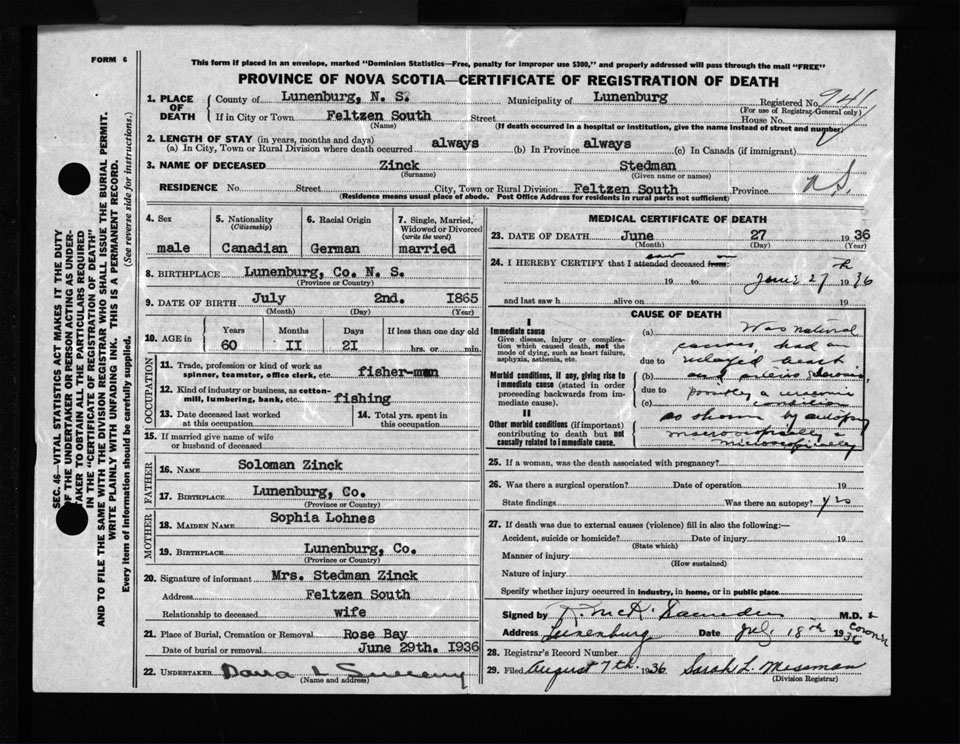 FORM 6
This form if placed in an envelope, marked "Dominion Statistics—Free, penalty for improper use $300," and properly addressed will pass through the mail "FREE"
PROVINCE OF NOVA SCOTIA—CERTIFICATE OF REGISTRATION OF DEATH
SEC. 46—VITAL STATISTICS ACT MAKES IT THE DUTY
OF THE UNDERTAKER OR PERSON ACTING AS UNDER-
TAKER TO OBTAIN ALL THE PARTICULARS REQUIRED
IN THE "CERTIFICATE OF REGISTRATION OF DEATH"
AND TO FILE THE SAME WITH THE DIVISION REGISTRAR WHO SHALL ISSUE THE BURIAL PERMIT.
WRITE PLAINLY WITH UNFADING INK. THIS IS A PERMANENT RECORD.
Every item of information should be carefully supplied. (See reverse side for instructions.)
1. PLACE OF DEATH County of Lunenburg, N. S. Municipality of Lunenburg Registered No. 941
(For use of Registrar-General only)
If in City or Town Feltzen South Street House No.
(Name) (If death occurred in a hospital or institution, give the name instead of street and number)
2. LENGTH OF STAY (in years, months and days)
(a) In City, Town or Rural Division where death occurred always (b) In Province always (c) In Canada (if immigrant)
3. NAME OF DECEASED Zinck Stedman
(Surname) (Given name or names)
RESIDENCE No. Street City, Town or Rural Division Feltzen South Province N.S.
(Residence means usual place of abode. Post Office Address for residents in rural parts not sufficient)
4. Sex male
5. Nationality (Citizenship) Canadian
6. Racial Origin German
7. Single, Married, Widowed or Divorced (write the word) married
8. BIRTHPLACE Lunenburg, Co. N. S.
(Province or Country)
9. DATE OF BIRTH July 2nd. 1865
(Month) (Day) (Year)
10. AGE in Years 60 Months 11 Days 21 If less than one day old hrs. or min.
OCCUPATION
11. Trade, profession or kind of work as spinner, teamster, office clerk, etc. fisher-man
12. Kind of industry or business, as cotton-mill, lumbering, bank, etc. fishing
13. Date deceased last worked at this occupation
14. Total yrs. spent in this occupation
15. If married give name of wife or husband of deceased
FATHER
16. NAME Soloman Zinck
17. BIRTHPLACE Lunenburg, Co.
(Province or Country)
MOTHER
18. MAIDEN NAME Sophia Lohnes
19. BIRTHPLACE Lunenburg, Co.
(Province or Country)
20. Signature of informant Mrs. Stedman Zinck
Address Feltzen South
Relationship to deceased wife
21. Place of Burial, Cremation or Removal Rose Bay
Date of burial or removal June 29th. 1936
22. UNDERTAKER
(Name and address)
MEDICAL CERTIFICATE OF DEATH
23. DATE OF DEATH June 27 1936
(Month) (Day) (Year)
24. I HEREBY CERTIFY that I attended deceased from: saw on
19 to June 27th 1936
and last saw h alive on 19
CAUSE OF DEATH
I
Immediate cause
Give disease, injury or complication which caused death, not the mode of dying, such as heart failure, asphyxia, asthenia, etc.
Morbid conditions, if any, giving rise to immediate cause (stated in order proceeding backwards from immediate cause).
II
Other morbid conditions (if important) contributing to death but not causally related to immediate cause.
(a) Was natural
causes, had an
due to heart
(b) and
due to possibly a uremic
(c) condition
as shown by autopsy
macroscopically &
microscopically
25. If a woman, was the death associated with pregnancy?
26. Was there a surgical operation? Date of operation 19
State findings Was there an autopsy? yes
27. If death was due to external causes (violence) fill in also the following:—
Accident, suicide or homicide? Date of injury 19
(State which)
Manner of injury
(How sustained)
Nature of injury
Specify whether injury occurred in industry, in home, or in public place
Signed by R. McK. Saunders M.D. & Coroner
Address Lunenburg Date July 18th 1936
28. Registrar's Record Number
29. Filed August 7th. 1936 Sarah L. Messman
(Division Registrar)